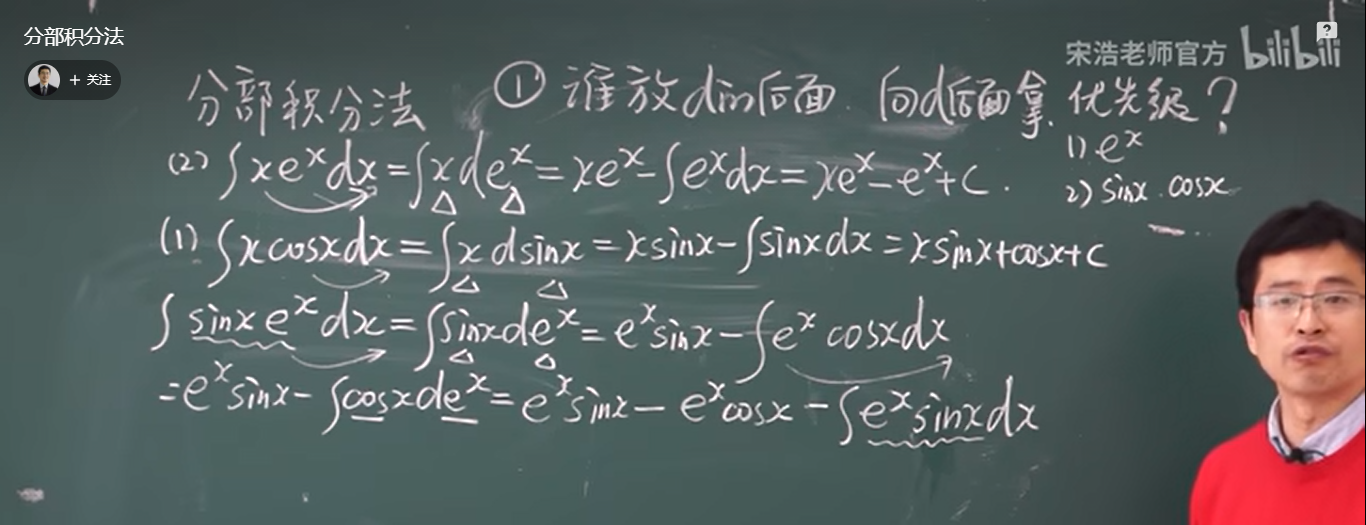 分部积分法
+ 关注
宋浩老师官方 bilibili
分部积分法 ① 谁放d的后面. 向d后面拿. 优先级?
1) eˣ
2) sinx . cosx
(2) ∫xeˣdx=∫xdeˣ=xeˣ-∫eˣdx=xeˣ-eˣ+C.
(1) ∫xcosxdx=∫xdsinx=xsinx-∫sinxdx=xsinx+cosx+C
∫sinxeˣdx=∫sinxdeˣ=eˣsinx-∫eˣcosxdx
=eˣsinx-∫cosxdeˣ=eˣsinx-eˣcosx-∫eˣsinxdx